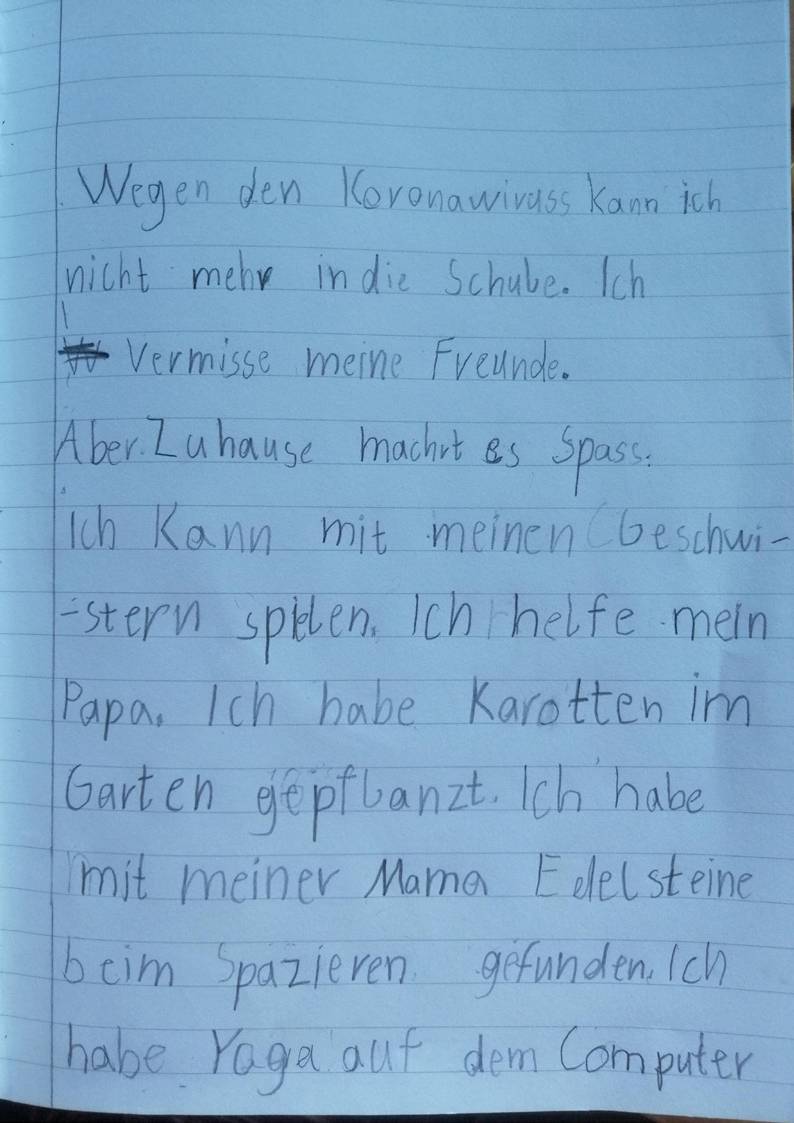 Wegen den Koronawiruss kann ich
nicht mehr in die Schule. Ich
vermisse meine Freunde.
Aber Zuhause macht es Spass.
Ich Kann mit meinen Geschwi-
-stern spielen. Ich helfe mein
Papa. Ich habe Karotten im
Garten gepflanzt. Ich habe
mit meiner Mama Edelsteine
beim Spazieren gefunden. Ich
habe Yoga auf dem Computer